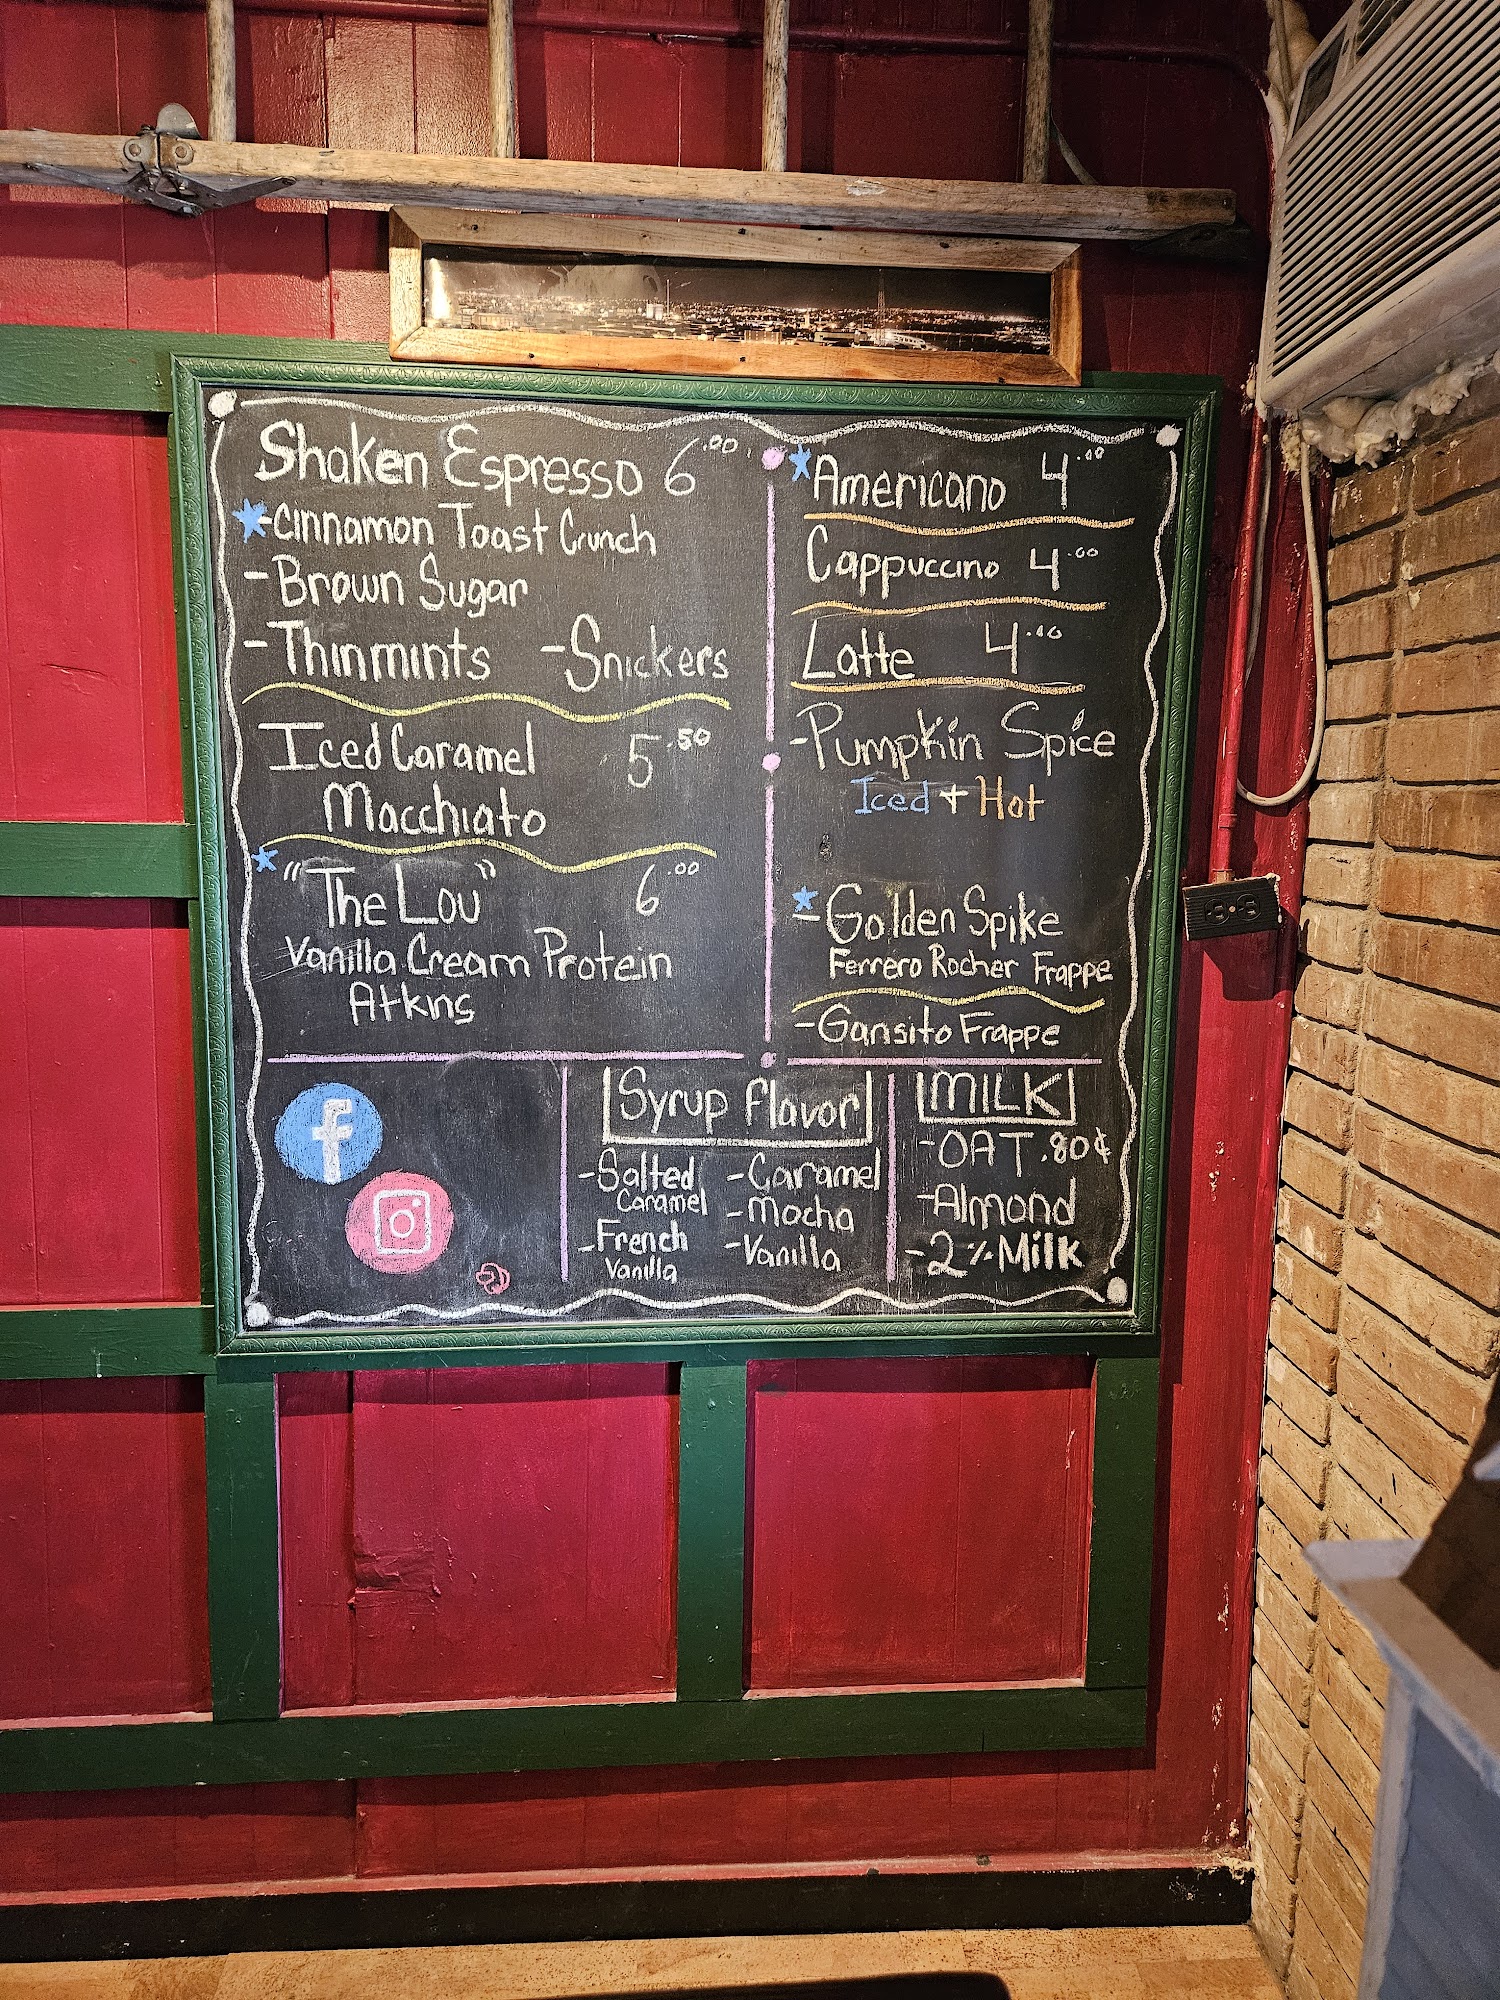 Shaken Espresso 6.00
-Cinnamon Toast Crunch
-Brown Sugar
-Thinmints -Snickers
Iced Caramel 5.50
Macchiato
"The Lou" 6.00
Vanilla Cream Protein
Atkins
Americano 4.00
Cappuccino 4.00
Latte 4.00
-Pumpkin Spice
Iced + Hot
-Golden Spike
Ferrero Rocher Frappe
-Gansito Frappe
f
Syrup Flavor
-Salted
Caramel
-French
Vanilla
-Caramel
-Mocha
-Vanilla
MILK
-OAT .80¢
-Almond
-2% Milk